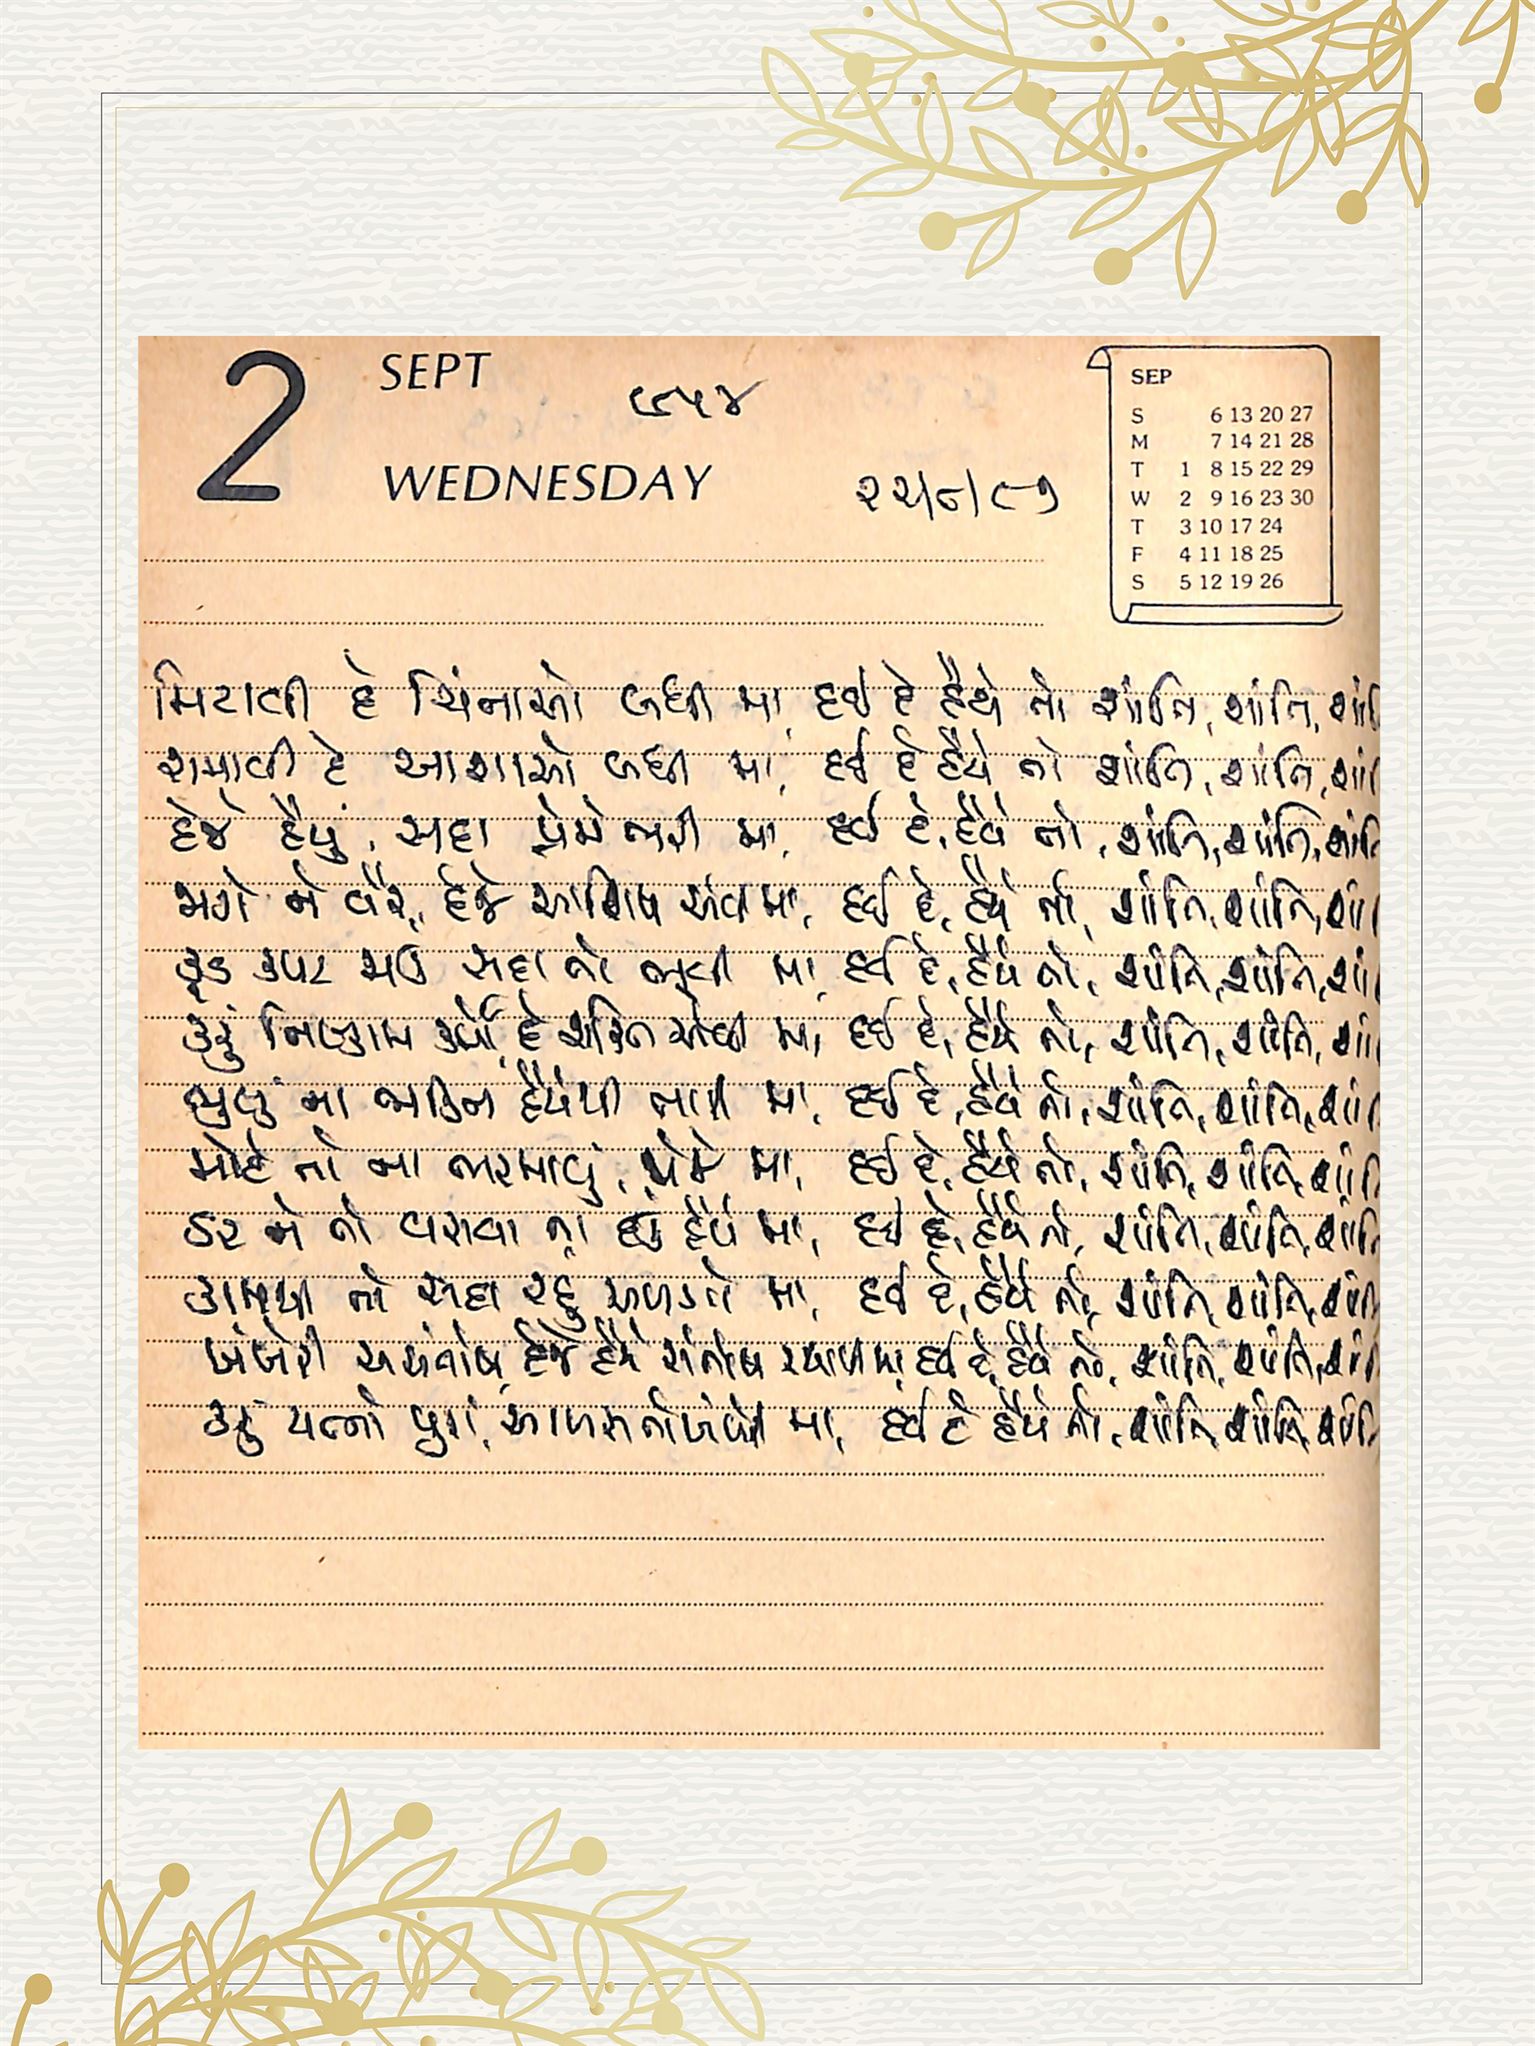 2 SEPT
૯૫૪
WEDNESDAY
૨૨/૮/૮૭
SEP
S 6 13 20 27
M 7 14 21 28
T 1 8 15 22 29
W 2 9 16 23 30
T 3 10 17 24
F 4 11 18 25
S 5 12 19 26
મિટાવી દે ચિંતાઓ બધી મા, દઈ દે હૈયે તો શાંતિ, શાંતિ, શાં
શમાવી દે આશાઓ બધી મા, દઈ દે હૈયે તો શાંતિ, શાંતિ, શાં
દેજે હૈયું, સદા પ્રેમે ભરી મા, દઈ દે, હૈયે તો, શાંતિ, શાંતિ, શાંતિ
માગે ને વૈર, દેજે આશિષ એવા મા, દઈ દે, હૈયે તો, શાંતિ, શાંતિ, શાં
કૂડ કપટ જાઉં સદા તો ભૂલી મા, દઈ દે, હૈયે તો, શાંતિ, શાંતિ, શાં
કરું નિષ્કામ કર્મો, દે શક્તિ એવી મા, દઈ દે, હૈયે તો, શાંતિ, શાંતિ, શાં
ભુલું ના ભક્તિ હૈયેથી તારી મા, દઈ દે, હૈયે તો, શાંતિ, શાંતિ, શાં
મોહે તો ના ભરમાવું, પ્રેમે મા, દઈ દે, હૈયે તો, શાંતિ, શાંતિ, શાંતિ
ડર ને તો વસવા ના દઉં હૈયે મા, દઈ દે, હૈયે તો, શાંતિ, શાંતિ, શાંતિ
કામથી તો સદા રહું અળગો મા, દઈ દે, હૈયે તો, શાંતિ, શાંતિ, શાંતિ
ખંખેરી અસંતોષ, દેજે હૈયે સંતોષ સ્થાપી મા, દઈ દે, હૈયે તો, શાંતિ, શાંતિ, શાંતિ
કરું યત્નો પુરા, આળસ તો ખંખેરી મા, દઈ દે હૈયે તો, શાંતિ, શાંતિ, શાંતિ